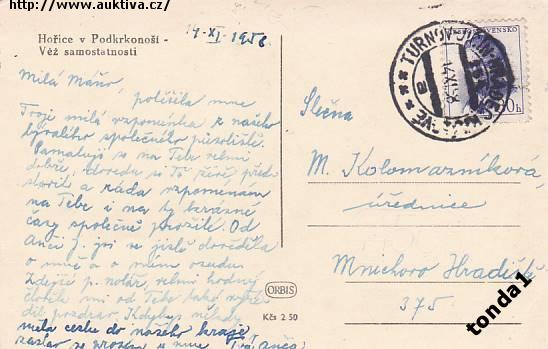 www.auktiva.cz
Hořice v Podkrkonoší -
Věž samostatnosti
14-XI-1958
Milá Máňo, potěšila mne
Tvoje milá vzpomínka z našeho
bývalého společného působiště.
Pamatuji se na Tebe velmi
dobře, dovedu si Tě živě před-
stavit a ráda vzpomínám
na Tebe i na ty krásné
časy společně prožité. Od
Anči J. jsi se jistě dověděla
o mně a o mém osudu.
Zdejší p. notář, velmi hodný
člověk mi od Tebe také
pozdrav. Kdybys někdy
měla cestu do našeho kraje,
zastav se u mne Anča
ORBIS
Kčs 2.50
TURNOV
14.XI.58
a
Slečna
M. Kolomazníková,
úřednice
Mnichovo Hradiště
375.
tonda1